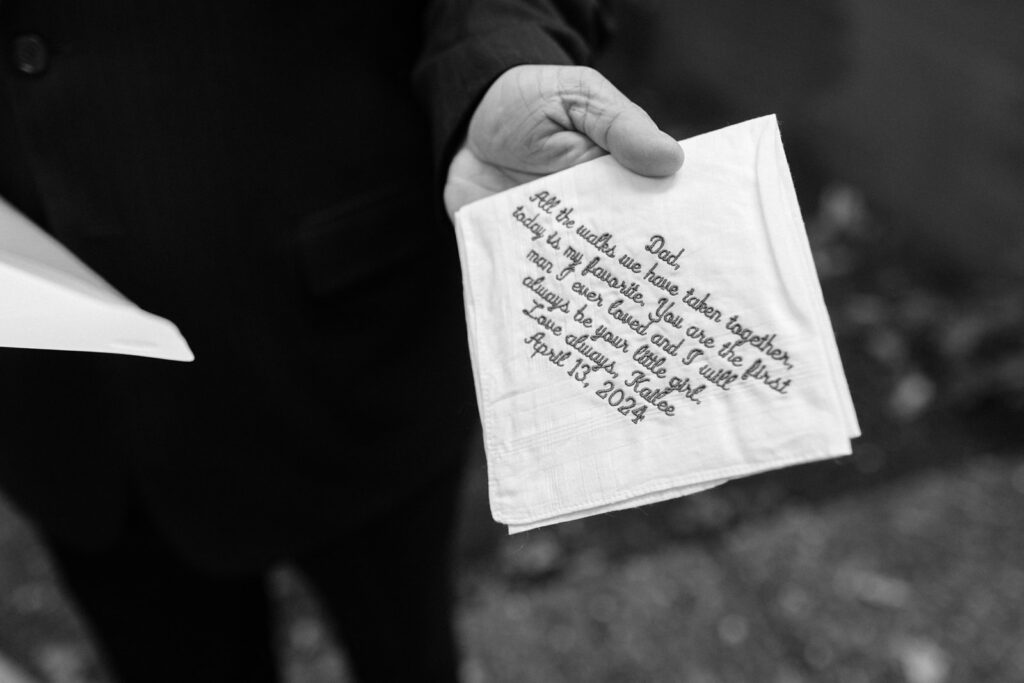 Dad,
All the walks we have taken together,
today is my favorite. You are the first
man I ever loved and I will
always be your little girl.
Love always, Kailee
April 13, 2024